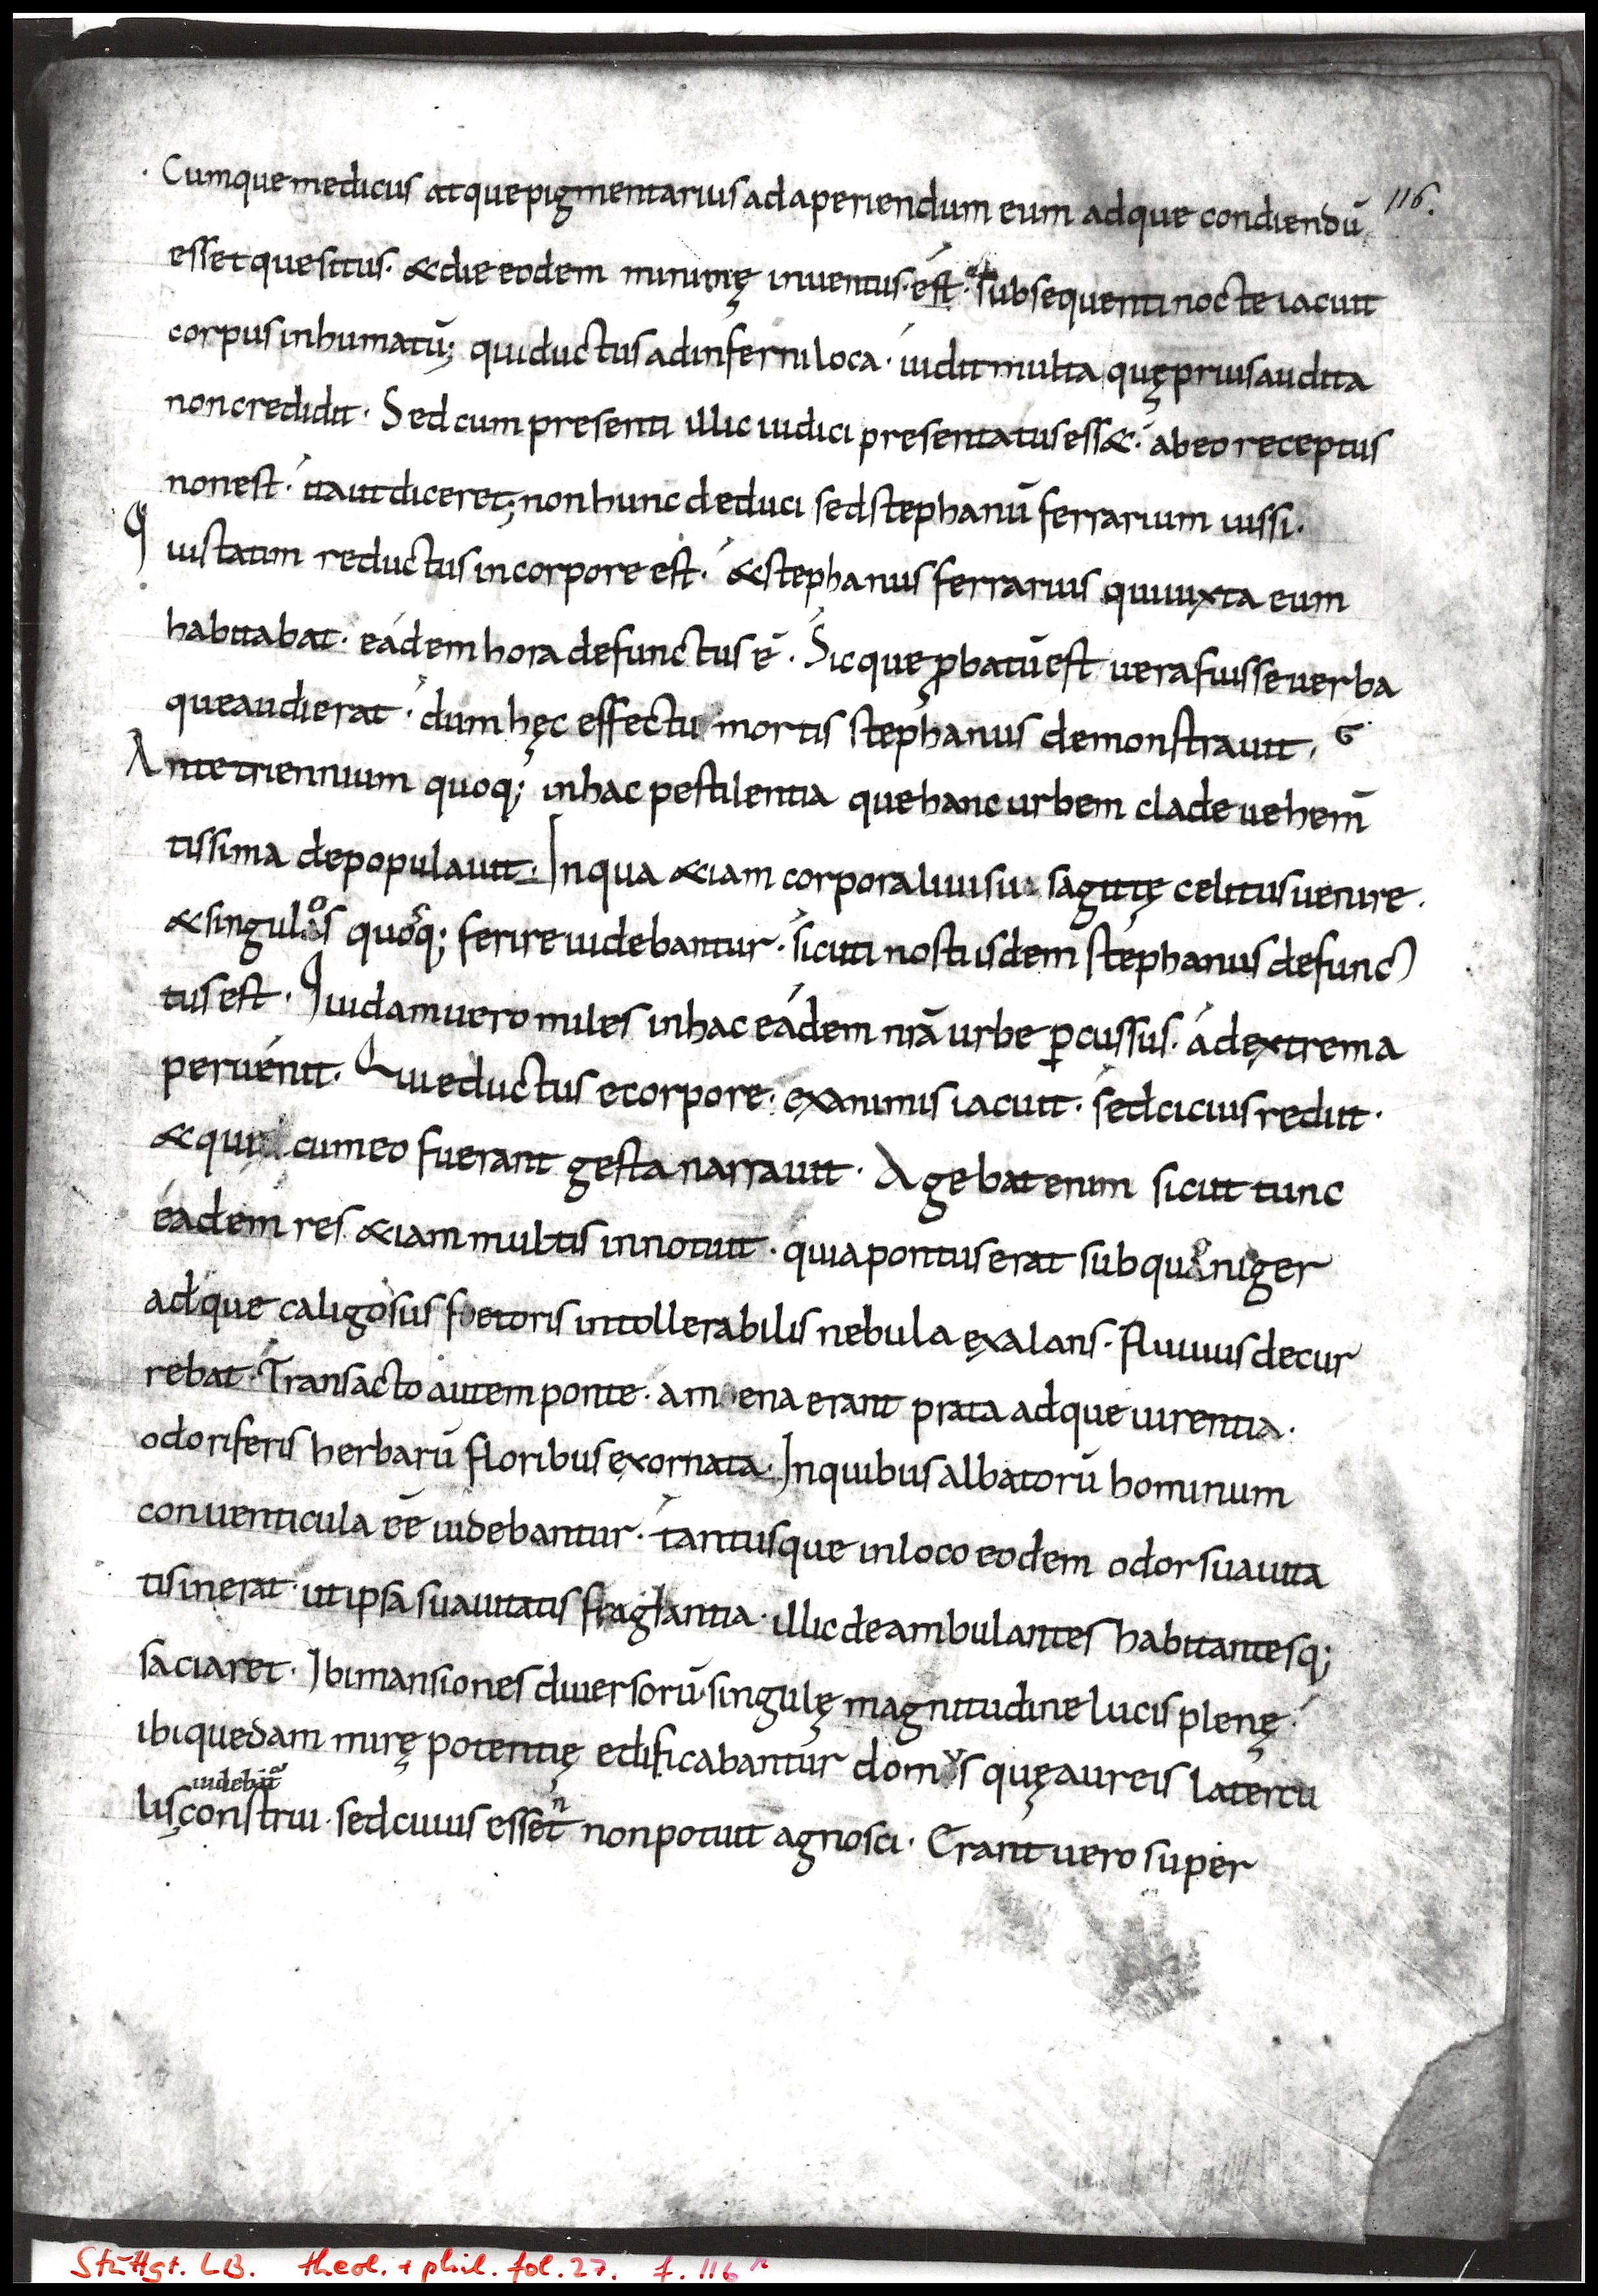 116.
Cumque medicus atque pigmentarius ad aperiendum eum adque condiendū
esset quesitus · & die eodem minimę inuentus · est · subsequenti nocte iacuit
corpus inhumatū; qui ductus ad inferni loca · uidit multa quę prius audita
non credidit · Sed cum presenti illic iudici presentatus ess& · ab eo receptus
non est · ita ut diceret; non hunc deduci sed stephanū ferrarium iussi ·
Q ui statim reductus in corpore est · & stephanus ferrarius qui iuxta eum
habitabat · eádem hora defunctus ē · Sicque ꝓbatū est uera fuisse uerba
que audierat · dum hęc effectu mortis stephanus demonstrauit · G
Ante triennium quoq; in hac pestilentia que hanc urbem clade uehem̄
tissima depopulauit · In qua &iam corporali uisu sagittę celitus uenire ·
& singulos quosq; ferire uidebantur · sicuti nosti isdem stephanus defunc
tus est · Quidam uero miles in hac eádem nrā urbe ꝑcussus · ád extrema
peruénit · Qui eductus e corpore · exanimis iacuit · sed cicius rediit ·
& qui cum eo fuerant gesta narrauit · Agebat enim sicut tunc
éadem res &iam multis innotuit · quia pontus erat sub quo niger
adque caligosus foetoris intollerabilis nebula exalans · fluuius decur
rebat · Transacto autem ponte · amoena erant prata adque uirentia ·
odoriferis herbarū floribus exornata · In quibus albatorū hominum
conuenticula ēē uidebantur · tantusque in loco eodem odor suauita
tis inerat · ut ipsa suauitatis fraglantia · illic deambulantes habitantesq;
saciaret · Ibi mansiones diuersorū singulę magnitudine lucis plenę ·
ibi quedam mirę potentię edificabantur domus quę aureis latercu
uidebat᷑
lis construi · sed cuius essent non potuit agnosci · Erant uero super
Stuttgt. LB. theol. + phil. fol. 27. f. 116 r